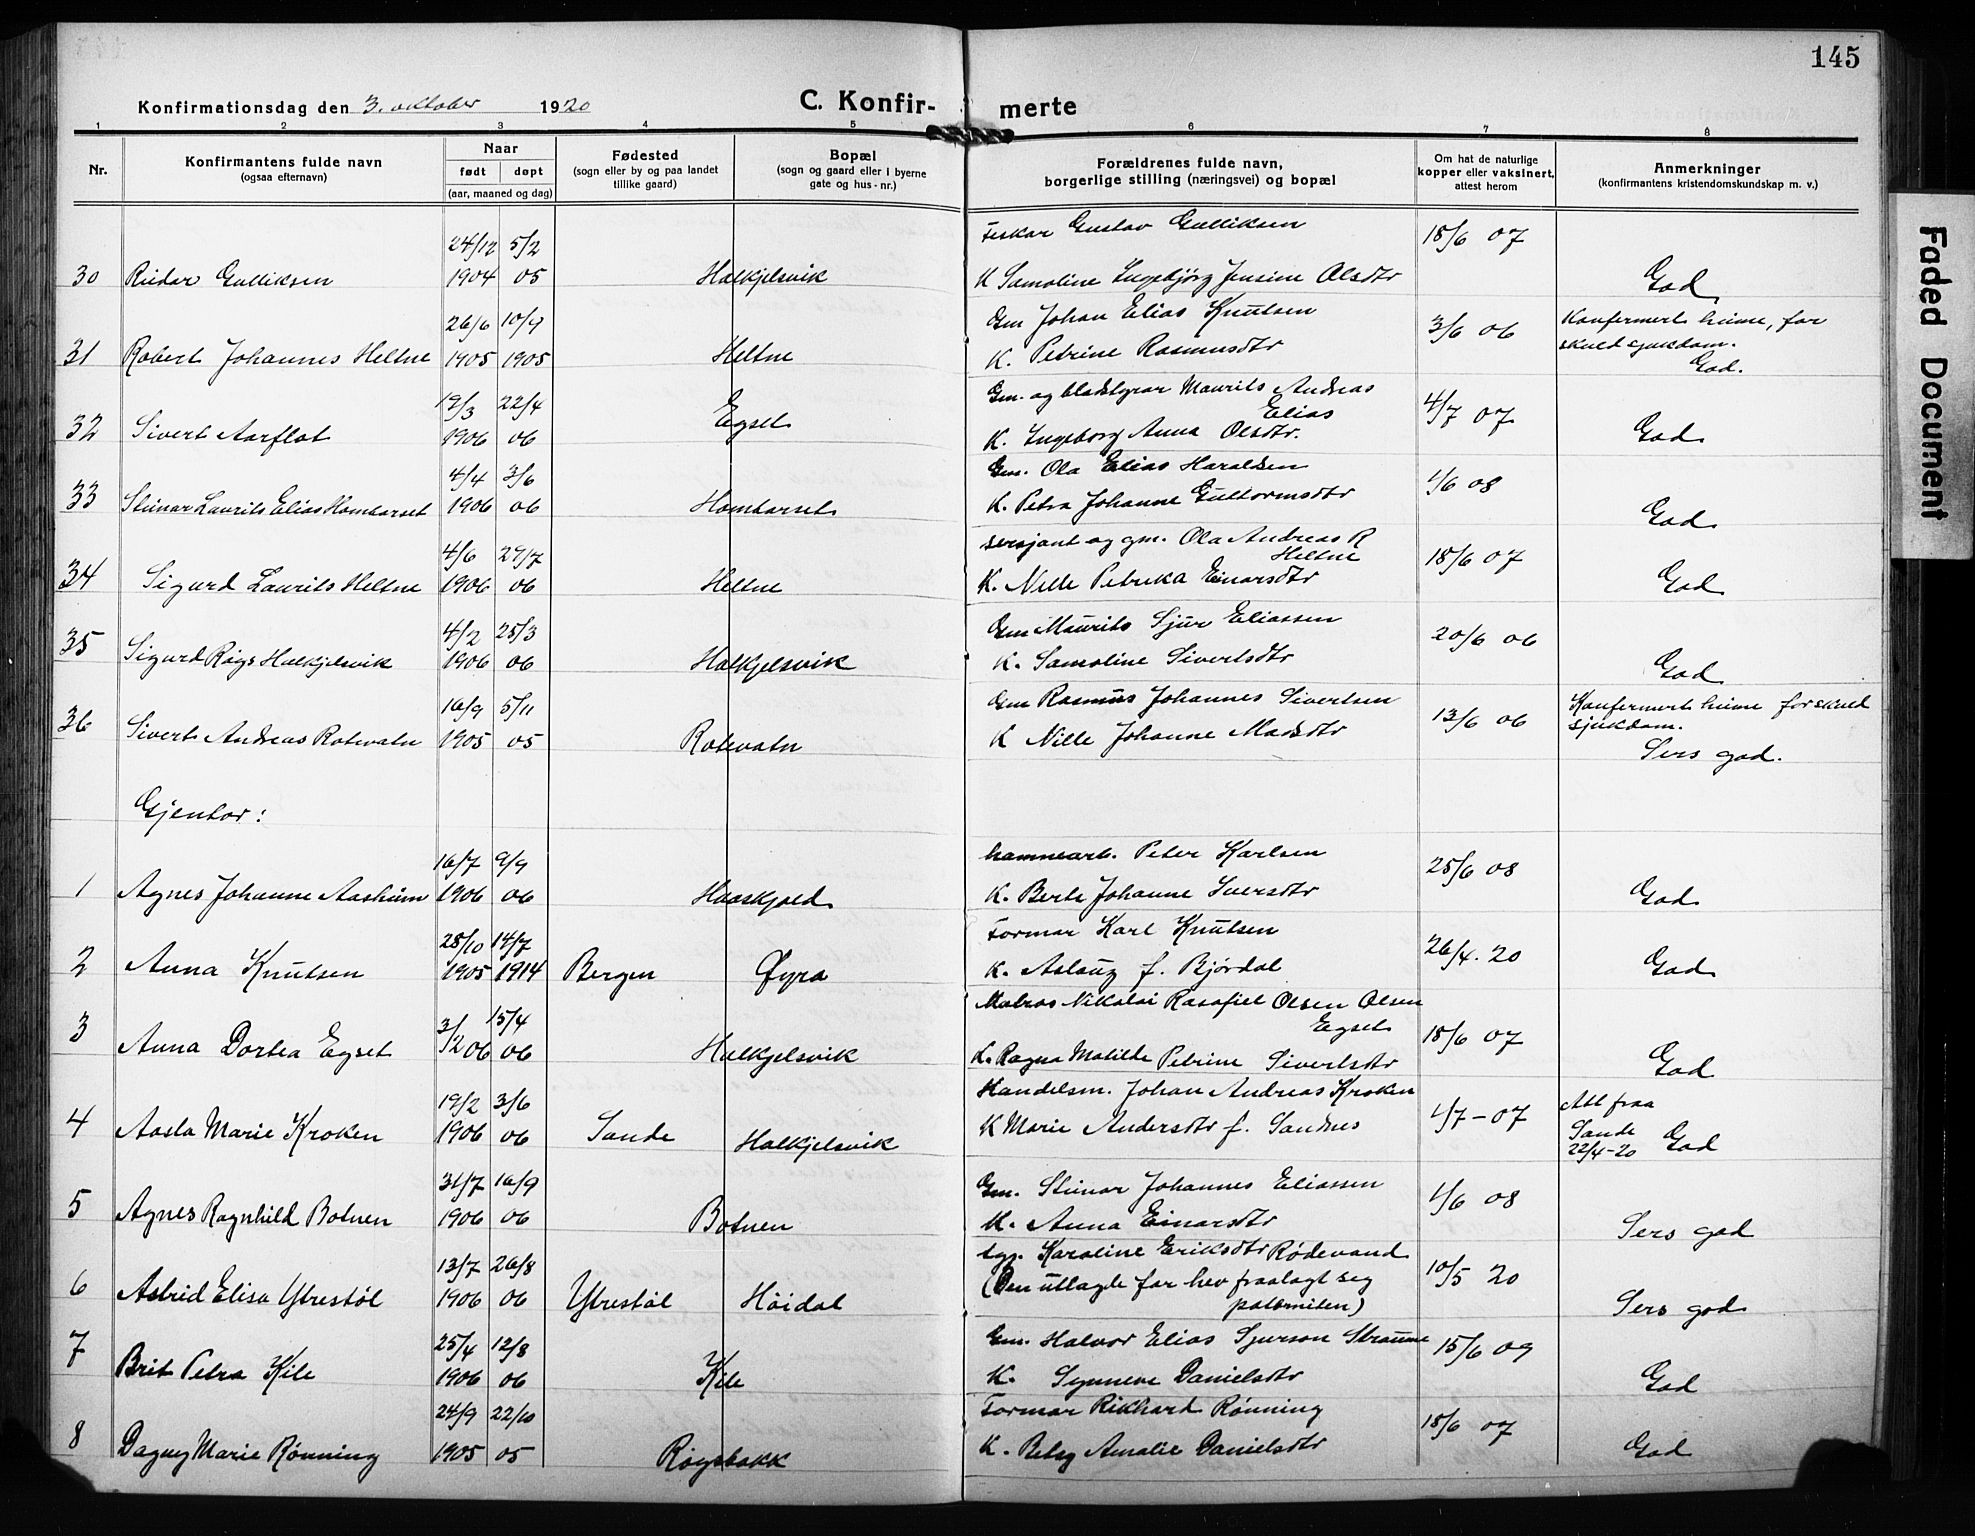 145
Konfirmationsdag den 3. oktober 1920
C. Konfir- merte
1 2 3 4 5 6 7 8
Nr.
Konfirmantens fulde navn
(ogsaa efternavn)
Naar
født døpt
(aar, maaned og dag)
Fødested
(sogn eller by og paa landet
tillike gaard)
Bopæl
(sogn og gaard eller i byerne
gate og hus-nr.)
Forældrenes fulde navn,
borgerlige stilling (næringsvei) og bopæl
Om hat de naturlige
kopper eller vaksinert,
attest herom
Anmerkninger
(konfirmantens kristendomskundskap m. v.)
24/12 5/2 Feskar Gustav Gulliksen 18/6 07
30 Reidar Gulliksen 1904 05 Halkjelsvik K Samoline Ingebjørg Jensine Olsdtr God
26/6 10/9 Gm Johan Elias Knutsen 3/6 06 Konfermert heime, for
31 Robert Johannes Heltne 1905 1905 Heltne K. Petrine Rasmusdtr skuld sjukdom.
God.
19/3 22/4 Gm. og bladstyrar Maurits Andreas
Elias 4/7 07
32 Sivert Aarflot 1906 06 Egset K. Ingeborg Anna Olsdtr. God
4/4 3/6 Gm. Ola Elias Haraldsen 1/6 08
33 Steinar Laurits Elias Homborset 1906 06 Homborset K. Petra Johanne Guttormsdtr God
4/6 29/7 sersjant og gm. Ola Andreas R
Heltne 18/6 07
34 Sigurd Laurits Heltne 1906 06 Heltne K. Nille Petrika Einarsdtr God
4/2 25/3 Gm Maurits Sjur Eliassen 20/6 06
35 Sigurd Røys Halkjelsvik 1906 06 Halkjelsvik K. Samoline Sivertsdtr God
16/9 5/11 Gm Rasmus Johannes Sivertsen 13/6 06 Konfermert heime for skuld
sjukdom.
36 Sivert Andreas Rotevatn 1905 05 Rotevatn K Nille Johanne Madsdtr Sers god.
Gjentor:
16/7 9/9 hamnearb. Peter Karlsen 25/6 08
1 Agnes Johanne Aasheim 1906 06 Haaskjold K. Berte Johanne Iversdtr God
28/10 14/7 Formar Karl Knutsen 26/4. 20
2 Anna Knutsen 1905 1914 Bergen Øyra K. Aslaug f. Bjørdal God
3/2 06 15/4 Matros Nikolai Rasafiel Olsen Olsen
Egset 18/6 07
3 Anna Dortea Egset 06 Halkjelsvik K. Ragna Matilde Petrine Sivertsdtr God
19/2 3/6 Handelsm. Johan Andreas Kroken 1/7-07 Att fraa
4 Aasla Marie Kroken 1906 06 Sande Halkjelsvik K Marie Andersdtr f. Sandnes Sande
22/4-20 God
31/7 16/9 Gm. Steinar Johannes Eliassen 1/6 08
5 Agnes Ragnhild Botnen 1906 06 Botnen K. Anna Einarsdtr Sers god
13/7 26/8 tgj. Karoline Eriksdtr Rødevand 10/5 20
6 Astrid Elisa Ytrestøl 1906 06 Ytrestøl Høidal (Den utlagde far hev fraalagt seg
paterniten) Sers god
25/4 12/8 Gm. Halvor Elias Sjurson Straume 15/6 09
7 Brit Petra Kile 1906 06 Kile K. Synneve Danielsdtr God
24/9 22/10 Formar Rikhard Rønning 18/6 07
8 Dagny Marie Rønning 1905 05 Røysbakk K. Betsy Amalie Danielsdtr God
Faded Document